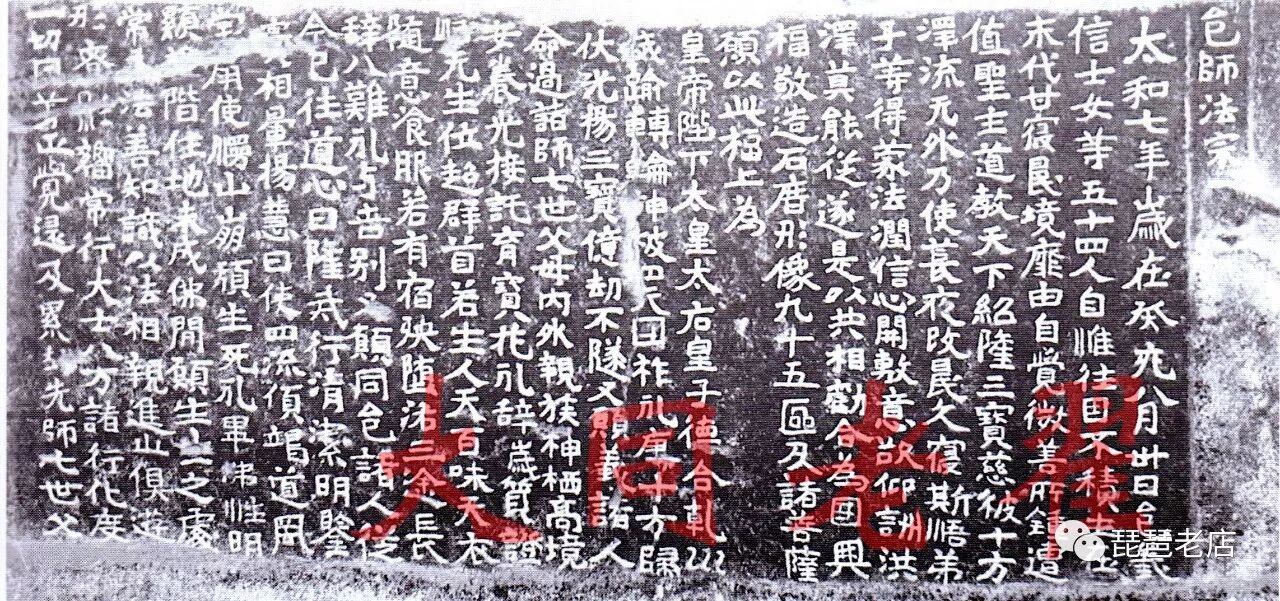 邑師法宗
太和七年歲在癸亥八月卅日邑義
信士女等五十四人自惟往因不積生在
末代甘寢昬境靡由自覺微善所鍾遭
值聖主道教天下紹隆三寶慈被十方
澤流无外乃使萇夜改昬久寢斯悟弟
子等得蒙法潤信心開敷意欲仰詶洪
澤莫能從遂是以共相勸合為國興
福敬造石庿形像九十五區及諸菩薩
願以此福上為
皇帝陛下太皇太后皇子德合乾
威踰轉輪神被四天國祚永康十方歸
伏光揚三寶億劫不墜又願義諸人
命過諸師七世父母内外親族神栖高境
安養光接託育寶花永辭穢質證
悟无生位超群首若生人天百味天衣
隨意飡服若有宿殃墮洛三途長
辭八難永与苦別又願同邑諸人從
今已往道心日隆戒行清潔明鑒
實相暈揚慧日使四流傾竭道風
堂扇使慢山崩頹生死永畢佛性明
顯登階住地未成佛間願生生之處
常為法善知識以法相親進止俱遊
形容嚮常行大士八万諸行化度
一切同善正覺逮及累劫先師七世父
大同老翟
琵琶老店